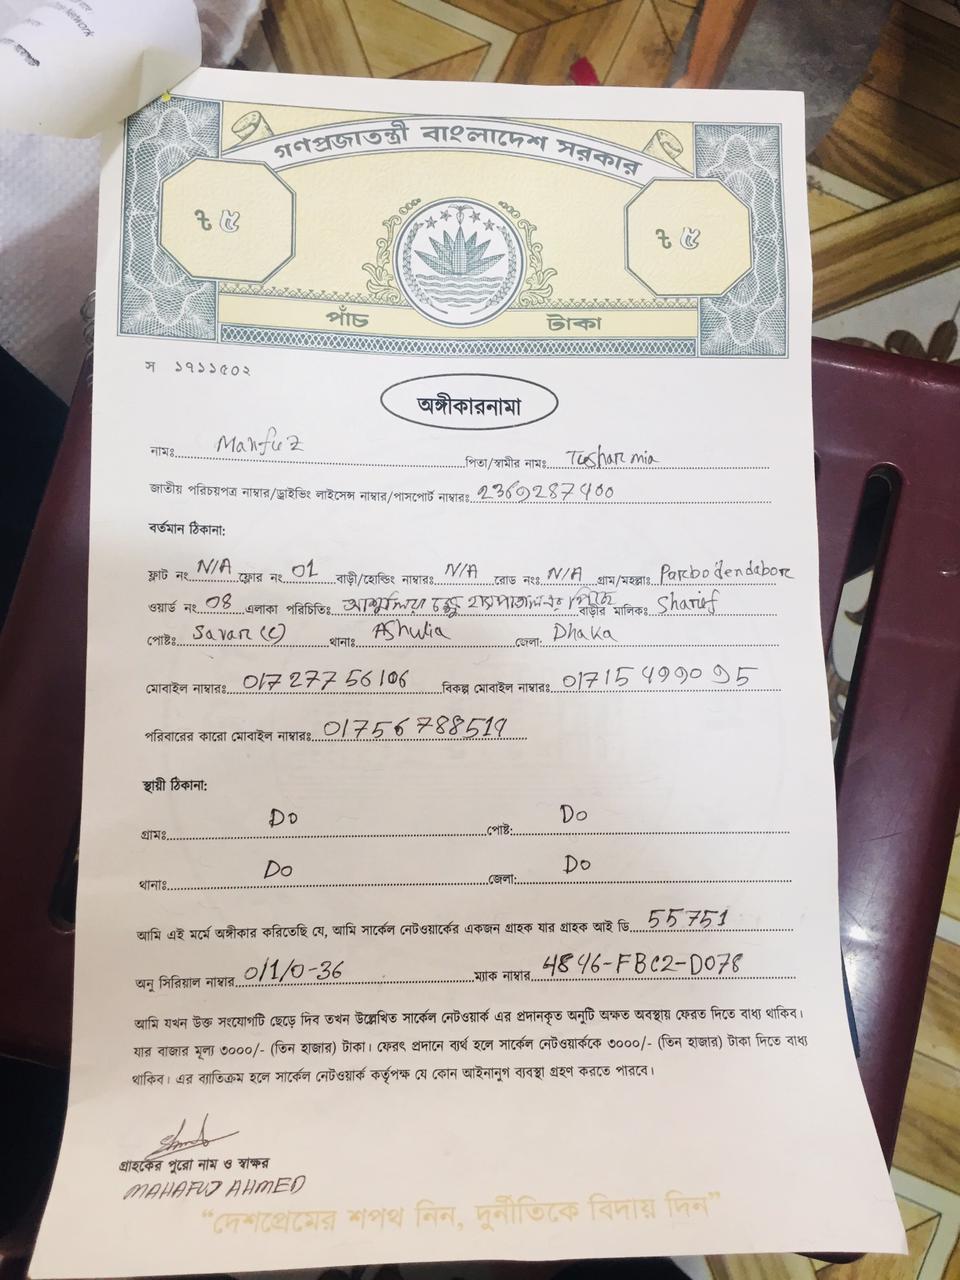 Network
গণপ্রজাতন্ত্রী বাংলাদেশ সরকার
৳ ৫ ৳ ৫
পাঁচ টাকা
স ১৭১১৫০২
অঙ্গীকারনামা
নামঃ Mahfuz পিতা/স্বামীর নামঃ Tushar mia
জাতীয় পরিচয়পত্র নাম্বার/ড্রাইভিং লাইসেন্স নাম্বার/পাসপোর্ট নাম্বারঃ 2369287400
বর্তমান ঠিকানা:
ফ্লাট নং N/A ফ্লোর নং 01 বাড়ী/হোল্ডিং নাম্বারঃ N/A রোড নংঃ N/A গ্রাম/মহল্লাঃ Parbodendabor
ওয়ার্ড নং 08 এলাকা পরিচিতিঃ আশুলিয়া চক্ষু বাড়ীর মালিকঃ Sharif
পোষ্টঃ Savar (c) থানাঃ Ashulia জেলা: Dhaka
মোবাইল নাম্বারঃ 01727756106 বিকল্প মোবাইল নাম্বারঃ 01715499095
পরিবারের কারো মোবাইল নাম্বারঃ 01756788519
স্থায়ী ঠিকানা:
গ্রামঃ Do পোষ্ট: Do
থানাঃ Do জেলা: Do
আমি এই মর্মে অঙ্গীকার করিতেছি যে, আমি সার্কেল নেটওয়ার্কের একজন গ্রাহক যার গ্রাহক আই ডি 55751
অনু সিরিয়াল নাম্বার 0/1/0-36 ম্যাক নাম্বার 4846-FBC2-D078
আমি যখন উক্ত সংযোগটি ছেড়ে দিব তখন উল্লেখিত সার্কেল নেটওয়ার্ক এর প্রদানকৃত অনুটি অক্ষত অবস্থায় ফেরত দিতে বাধ্য থাকিব।
যার বাজার মূল্য ৩০০০/- (তিন হাজার) টাকা। ফেরৎ প্রদানে ব্যর্থ হলে সার্কেল নেটওয়ার্ককে ৩০০০/- (তিন হাজার) টাকা দিতে বাধ্য
থাকিব। এর ব্যাতিক্রম হলে সার্কেল নেটওয়ার্ক কর্তৃপক্ষ যে কোন আইনানুগ ব্যবস্থা গ্রহণ করতে পারবে।
গ্রাহকের পুরো নাম ও স্বাক্ষর
MAHAFUJ AHMED
“দেশপ্রেমের শপথ নিন, দুর্নীতিকে বিদায় দিন”